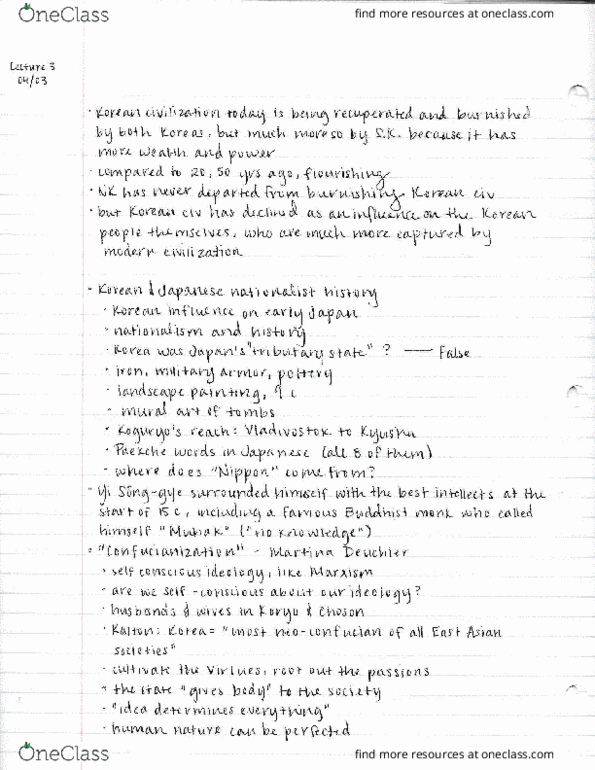 OneClass
find more resources at oneclass.com
Lecture 3
04/03
· Korean civilization today is being recuperated and burnished
by both Koreas, but much more so by S.K. because it has
more wealth and power
· compared to 20, 50 yrs ago, flourishing
· NK has never departed from burnishing Korean civ
· but Korean civ has declined as an influence on the Korean
people themselves, who are much more captured by
modern civilization
- Korean & Japanese nationalist history
· Korean influence on early Japan
· nationalism and history
· Korea was Japan's "tributary state" ? — False
· iron, military armor, pottery
· landscape painting, 9 c
· mural art of tombs
· Koguryo's reach: Vladivostok to Kyushu
· Paekche words in Japanese (all 8 of them)
· where does "Nippon" come from?
- Yi Sŏng-gye surrounded himself with the best intellects at the
start of 15 c, including a famous Buddhist monk who called
himself "Muhak" ("no knowledge")
- "Confucianization" - Martina Deuchler
· self conscious ideology, like Marxism
· are we self-conscious about our ideology?
· husbands & wives in Koryo & Choson
· Kalton: Korea = "most neo-confucian of all East Asian
societies"
· cultivate the virtues, root out the passions
· the state "gives body" to the society
· "idea determines everything"
· human nature can be perfected
OneClass
find more resources at oneclass.com